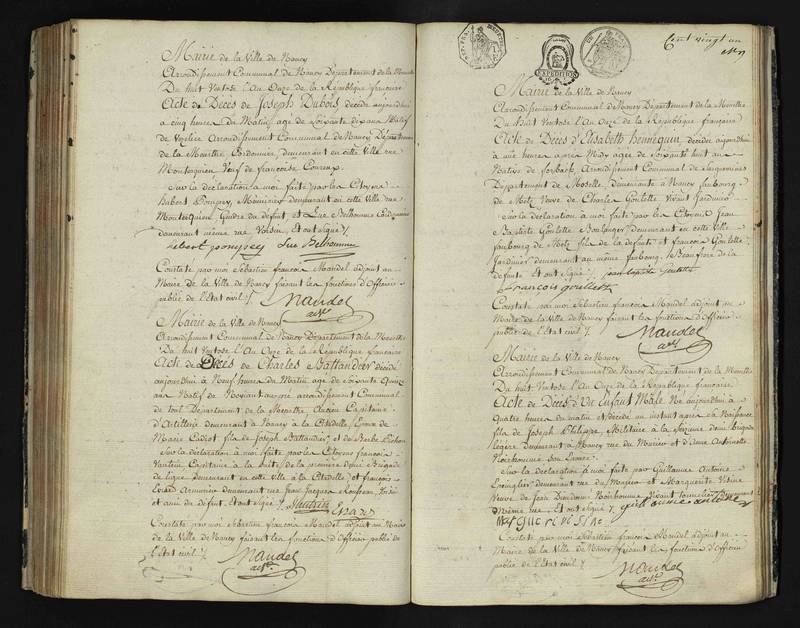 Mairie de la Ville de Nancy
Arrondissement Communal de Nancy Département de la Meurthe
Du huit Ventose l'An Onze de la République française
Acte de Décès de Joseph Dubois, décédé aujourd'hui
à cinq heures du Matin, agé de soixante dix ans Natif
de Vezelize Arrondissement Communal de Nancy Département
de la Meurthe Cordonnier, demeurant en cette Ville rue
Montesquieu Veuf de françoise
Sur la déclaration à moi faite par les Citoyens
Hubert Pompey, Menuisier demeurant en cette Ville rue
Montesquieu Gendre du défunt, et Luc Belhomme Cordonnier
demeurant même rue Voisin, Et ont signé
hubert pompey Luc Belhomme
Constaté par moi Sébastien françois Mandel adjoint au
Maire de la Ville de Nancy faisant les fonctions d'Officier
public de l'Etat civil
Mandel
adt
Mairie de la Ville de Nancy
Arrondissement Communal de Nancy Département de la Meurthe
Du huit Ventose l'An Onze de la République française
Acte de Décès de Charles Battandier décédé
aujourd'hui à Neuf heures du Matin agé de soixante Quinze
ans Natif de arrondissement Communal
de Toul Département de la Meurthe, Ancien Capitaine
d'Artillerie demeurant à Nancy à la Citadelle, Epoux de
Marie Cadiot fils de Joseph Battandier, et de Barbe
Sur la déclaration à moi faite par les Citoyens françois
Vautrin Capitaine à la suite de la première demi Brigade
de ligne, demeurant en cette Ville à la Citadelle et françois
Evard Armurier demeurant rue Jean Jacques Rousseau Voisin
et ami du défunt. Et ont signé Vautrin Evard
Constaté par moi Sébastien françois Mandel adjoint au Maire
de la Ville de Nancy faisant les fonctions d'Officier public de
l'Etat civil
Mandel
adt
Cent vingt un
EXPEDITION
Mairie de la Ville de Nancy
Arrondissement Communal de Nancy Département de la Meurthe
Du huit Ventose l'An Onze de la République française
Acte de Décès d'Elisabeth hennequin, décédée aujourd'hui
à une heure après Midy agée de soixante huit ans
Native de forback, Arrondissement Communal de Sarguemines
Département de Moselle, demeurante à Nancy faubourg
de Metz Veuve de Charles Goulette vivant Jardinier
Sur la déclaration à moi faite par les Citoyens Jean
Baptiste Goulette Boulanger demeurant en cette Ville
faubourg de Metz fils de la défunte et françois Goulette
Jardinier demeurant au même faubourg, le Beaufrère de la
défunte Et ont signé jean baptiste goulette
françois goulette
Constaté par moi Sébastien françois Mandel adjoint au
Maire de la Ville de Nancy faisant les fonctions d'Officier
public de l'Etat civil
Mandel
adt
Mairie de la Ville de Nancy
Arrondissement Communal de Nancy Département de la Meurthe
Du huit Ventose l'An Onze de la République française
Acte de Décès d'Un Enfant Mâle, Né aujourd'hui à
quatre heures du matin et décédé un instant après sa Naissance
fils de Joseph Philippe, Militaire à la demi Brigade
légère demeurant à Nancy rue du et d'Anne Antoinette
Norbonne son Epouse
Sur la déclaration à moi faite par Guillaume Antoine
demeurant rue du et Marguerite
Veuve de Jean Norbonne vivant Tonnelier demeurant
même rue, Et ont signé guillaume antoine
Constaté par moi Sébastien françois Mandel adjoint au
Maire de la Ville de Nancy faisant les fonctions d'Officier
public de l'Etat civil
Mandel
adt